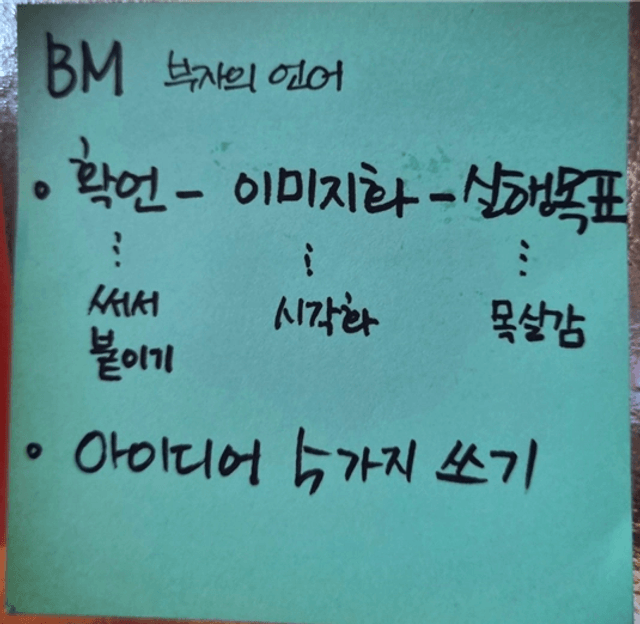 BM 부자의 언어
• 확언 - 이미지화 - 실행목표
⋮ ⋮ ⋮
써서 시각화 목실감
붙이기
• 아이디어 5가지 쓰기